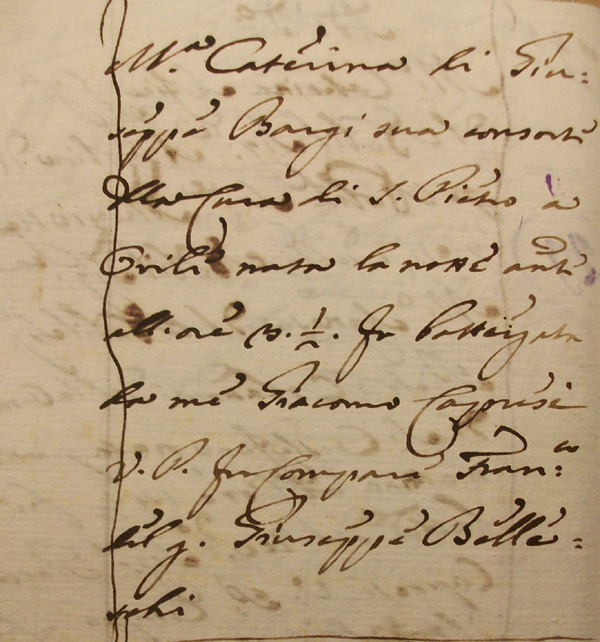 M.ª Caterina di Giu=
seppe Bargi sua consorte
della Cura di S. Pietro a
nata la notte ant.
all'ore 3. 1/2. fu battezzata
da me Giacomo Caporesi
V. P. fu Compare Fran:co
del q. Giuseppe Belle=
schi